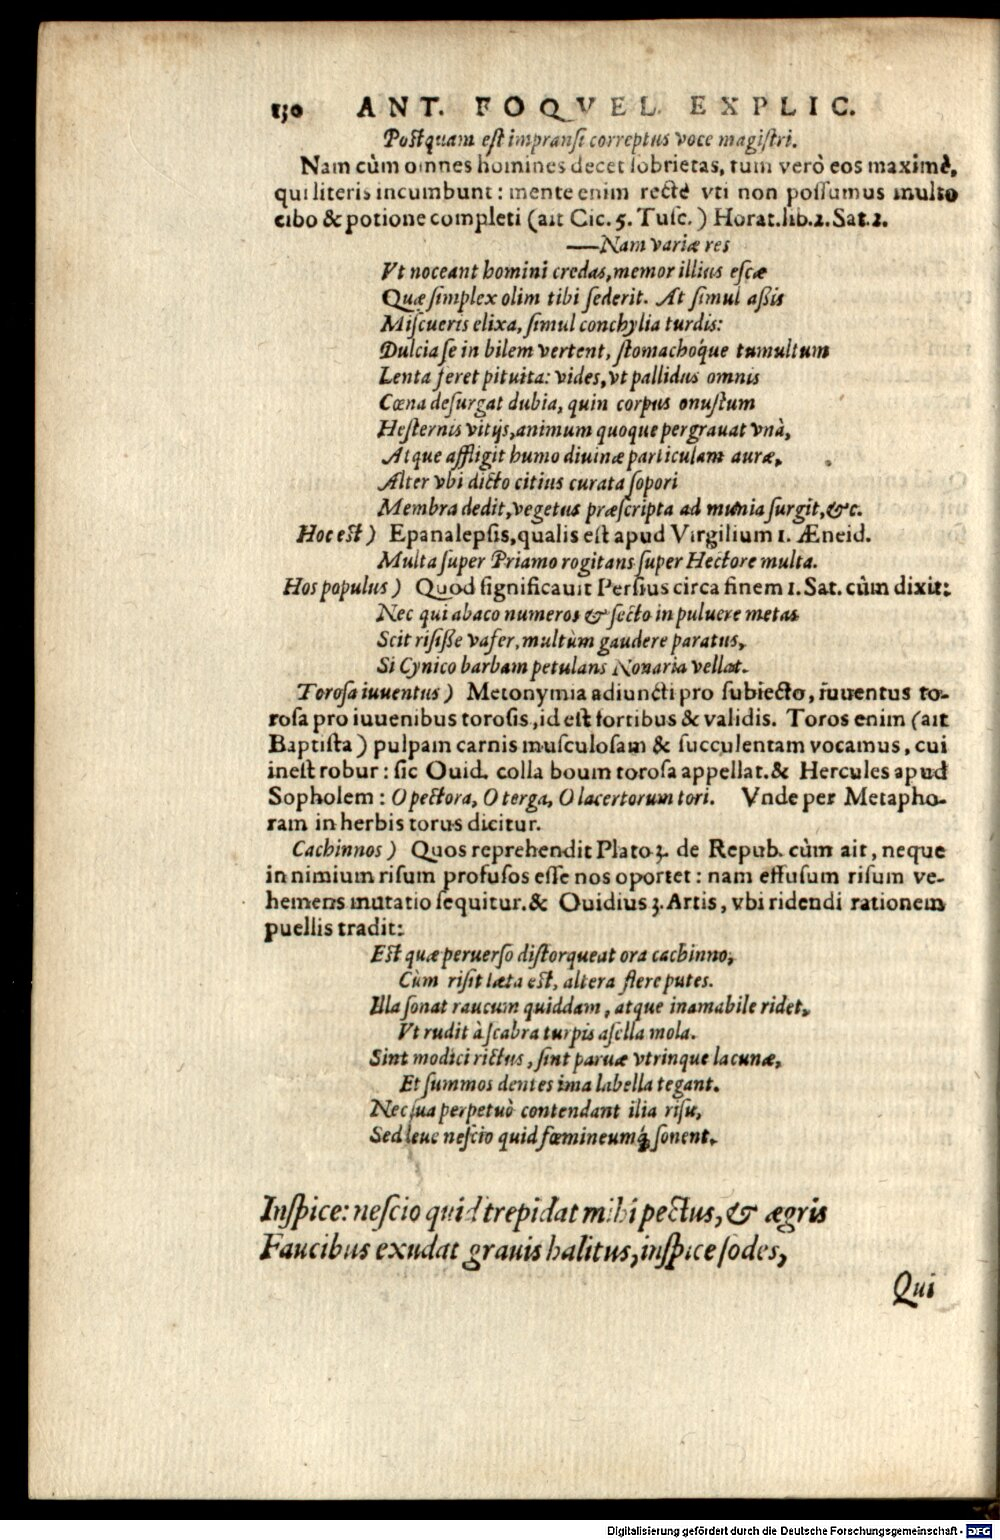 130 ANT. FOQVEL. EXPLIC.
Postquam est impransi correptus voce magistri.
Nam cùm omnes homines decet sobrietas, tum verò eos maximè,
qui literis incumbunt: mente enim rectè vti non possumus multo
cibo & potione completi (ait Cic. 5. Tusc.) Horat. lib. 2. Sat. 2.
——Nam variæ res
Vt noceant homini credas, memor illius escæ
Quæ simplex olim tibi sederit. At simul aßis
Miscueris elixa, simul conchylia turdis:
Dulcia se in bilem vertent, stomachoq́ue tumultum
Lenta feret pituita: vides, vt pallidus omnis
Cœna desurgat dubia, quin corpus onustum
Hesternis vitijs, animum quoque pergrauat vnà,
Atque affligit humo diuinæ particulam auræ,
Alter vbi dicto citius curata sopori
Membra dedit, vegetus præscripta ad munia surgit, &c.
Hoc est) Epanalepsis, qualis est apud Virgilium 1. Æneid.
Multa super Priamo rogitans super Hectore multa.
Hos populus) Quod significauit Persius circa finem 1. Sat. cùm dixit:
Nec qui abaco numeros & secto in puluere metas
Scit risiße vafer, multùm gaudere paratus,
Si Cynico barbam petulans Nonaria vellat.
Torosa iuuentus) Metonymia adiuncti pro subiecto, iuuentus to-
rosa pro iuuenibus torosis, id est fortibus & validis. Toros enim (ait
Baptista) pulpam carnis musculosam & succulentam vocamus, cui
inest robur: sic Ouid. colla boum torosa appellat. & Hercules apud
Sopholem: O pectora, O terga, O lacertorum tori. Vnde per Metapho-
ram in herbis torus dicitur.
Cachinnos) Quos reprehendit Plato 3. de Repub. cùm ait, neque
in nimium risum profusos esse nos oportet: nam effusum risum ve-
hemens mutatio sequitur. & Ouidius 3. Artis, vbi ridendi rationem
puellis tradit:
Est quæ peruerso distorqueat ora cachinno,
Cùm risit læta est, altera flere putes.
Illa sonat raucum quiddam, atque inamabile ridet,
Vt rudit à scabra turpis asella mola.
Sint modici rictus, sint paruæ vtrinque lacunæ,
Et summos dentes ima labella tegant.
Nec sua perpetuò contendant ilia risu,
Sed leue nescio quid fœmineumq́; sonent.
Inspice: nescio quid trepidat mihi pectus, & ægris
Faucibus exudat grauis halitus, inspice sodes,
Qui
Digitalisierung gefördert durch die Deutsche Forschungsgemeinschaft - DFG